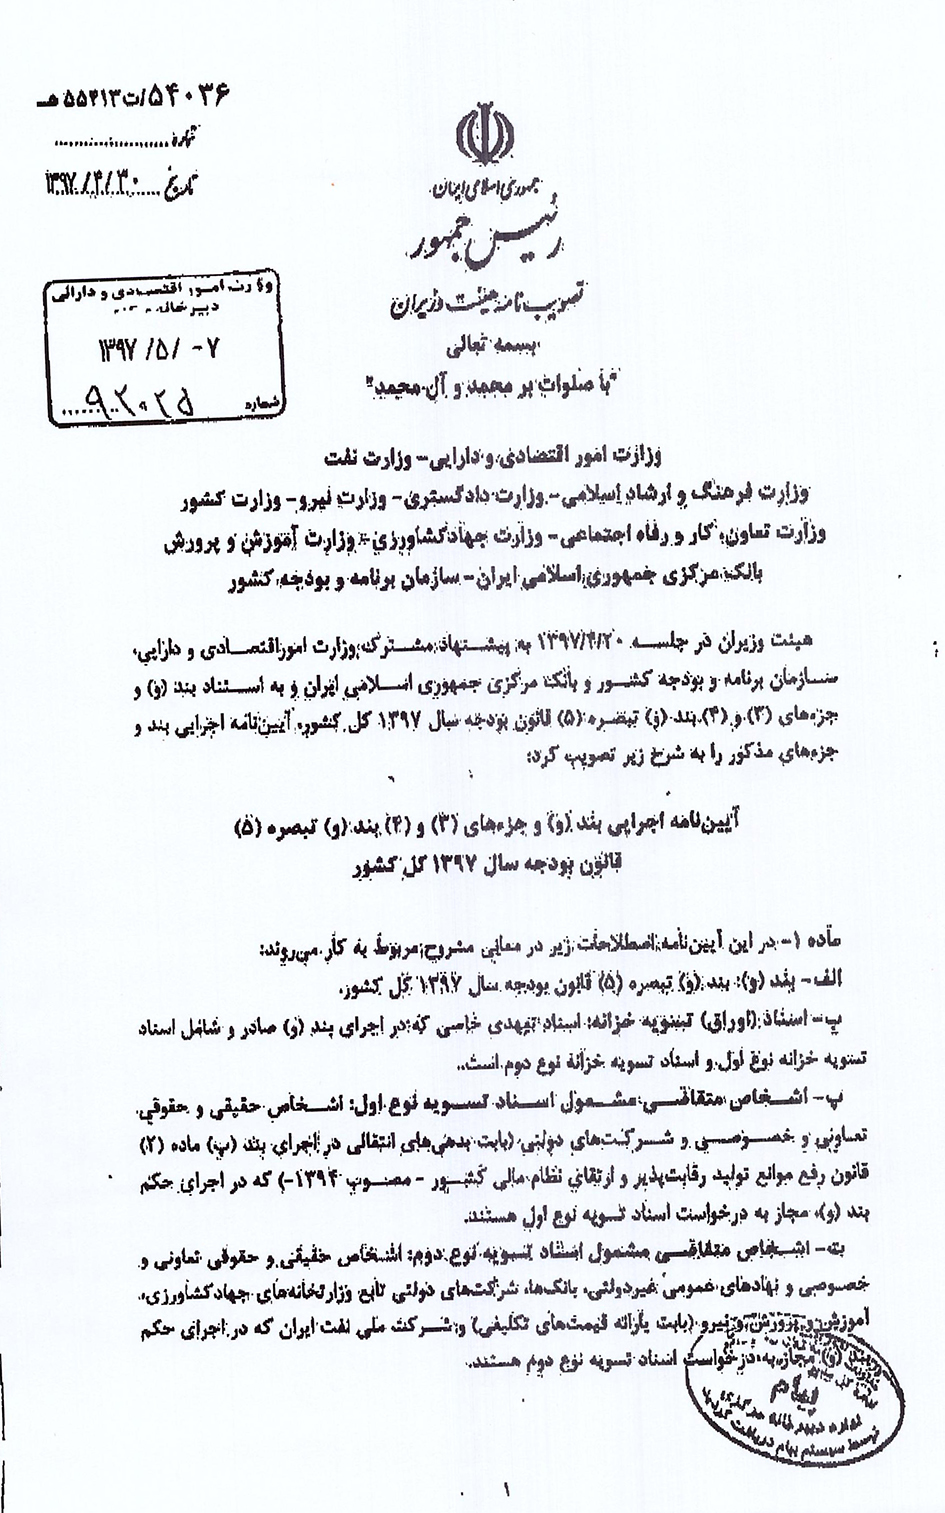 ۵۴۰۳۶/ت۵۵۴۱۳هـ
شماره
تاریخ ۱۳۹۷/۴/۳۰
جمهوری اسلامی ایران
رئیس جمهور
تصویب نامه هیئت وزیران
بسمه تعالی
"با صلوات بر محمد و آل محمد"
وزارت امور اقتصادی و دارایی
دبیرخانه
۱۳۹۷ /۵/ -۷
شماره ۹۲۰۲۵
وزارت امور اقتصادی و دارایی - وزارت نفت
وزارت فرهنگ و ارشاد اسلامی - وزارت دادگستری - وزارت نیرو - وزارت کشور
وزارت تعاون، کار و رفاه اجتماعی - وزارت جهاد کشاورزی - وزارت آموزش و پرورش
بانک مرکزی جمهوری اسلامی ایران - سازمان برنامه و بودجه کشور
هیئت وزیران در جلسه ۱۳۹۷/۴/۲۰ به پیشنهاد مشترک وزارت امور اقتصادی و دارایی،
سازمان برنامه و بودجه کشور و بانک مرکزی جمهوری اسلامی ایران و به استناد بند (و) و
جزءهای (۳) و (۴) بند (و) تبصره (۵) قانون بودجه سال ۱۳۹۷ کل کشور، آیین‌نامه اجرایی بند و
جزءهای مذکور را به شرح زیر تصویب کرد:
آیین‌نامه اجرایی بند (و) و جزءهای (۳) و (۴) بند (و) تبصره (۵)
قانون بودجه سال ۱۳۹۷ کل کشور
ماده ۱- در این آیین‌نامه اصطلاحات زیر در معانی مشروح مربوط به کار می‌روند:
الف- بند (و): بند (و) تبصره (۵) قانون بودجه سال ۱۳۹۷ کل کشور.
ب- اسناد (اوراق) تسویه خزانه: اسناد تعهدی خاصی که در اجرای بند (و) صادر و شامل اسناد
تسویه خزانه نوع اول و اسناد تسویه خزانه نوع دوم است.
پ- اشخاص متقاضی مشمول اسناد تسویه نوع اول: اشخاص حقیقی و حقوقی
تعاونی و خصوصی و شرکت‌های دولتی (بابت بدهی‌های انتقالی در اجرای بند (پ) ماده (۲)
قانون رفع موانع تولید رقابت‌پذیر و ارتقای نظام مالی کشور - مصوب ۱۳۹۴-) که در اجرای حکم
بند (و)، مجاز به درخواست اسناد تسویه نوع اول هستند.
ت- اشخاص متقاضی مشمول اسناد تسویه نوع دوم: اشخاص حقیقی و حقوقی تعاونی و
خصوصی و نهادهای عمومی غیردولتی، بانک‌ها، شرکت‌های دولتی تابع وزارتخانه‌های جهاد کشاورزی،
آموزش و پرورش و نیرو (بابت یارانه قیمت‌های تکلیفی) و شرکت ملی نفت ایران که در اجرای حکم
بند (و) مجاز به درخواست اسناد تسویه نوع دوم هستند.
پیام
اداره دبیرخانه مرکزی
توسط سیستم پیام دریافت گردید
۱